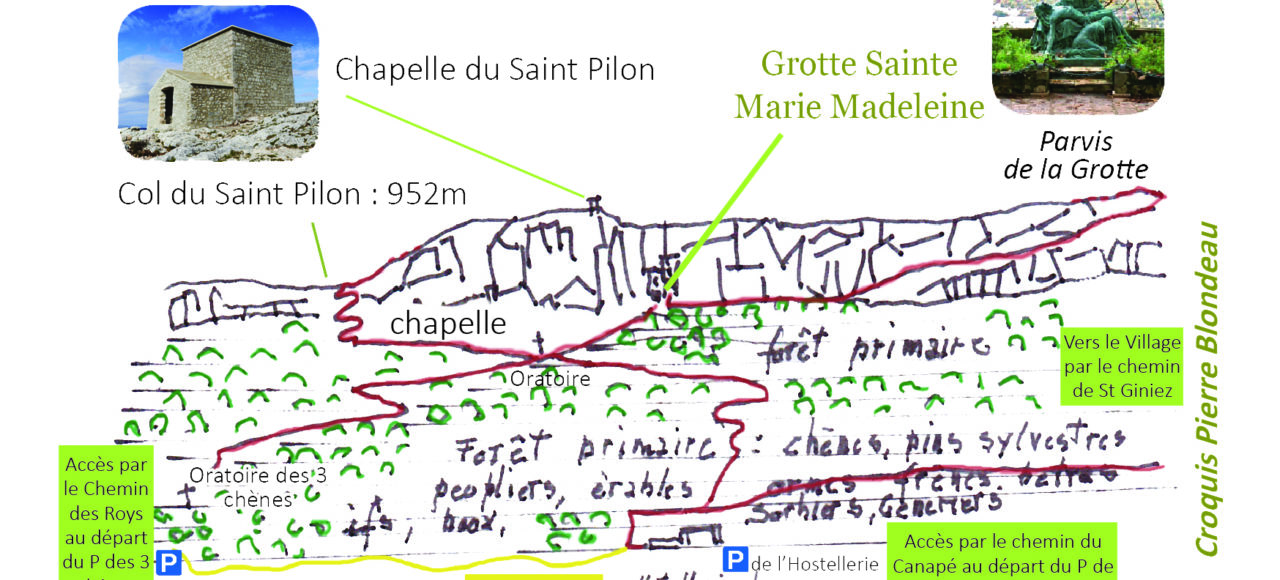 Chapelle du Saint Pilon
Grotte Sainte
Marie Madeleine
Parvis
de la Grotte
Col du Saint Pilon : 952m
chapelle
forêt primaire
Vers le Village
par le chemin
de St Giniez
Oratoire
Croquis Pierre Blondeau
Forêt primaire : chênes, pins sylvestres
Accès par
le Chemin
des Roys
au départ
du P des 3
Oratoire des 3
chènes
peupliers, èrables ormes frênes
ifs, houx, Sorbiers, Genevriers
P
P de l'Hostellerie
Accès par le chemin du
Canapé au départ du P de